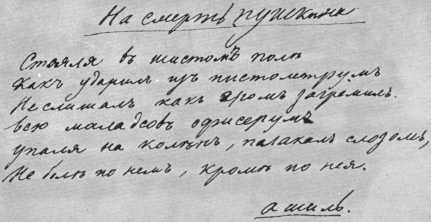 На смерть Пушкина
Стояля в шистомъ полю
Какъ ударилъ изъ пистомтрумъ
Не слишалъ какъ громъ загремилъ.
всю маладсовъ офисерумъ
упаля на колѣнъ, пачакалъ слозомъ,
Не болъ по немъ, кромъ по нея.
ашиль.